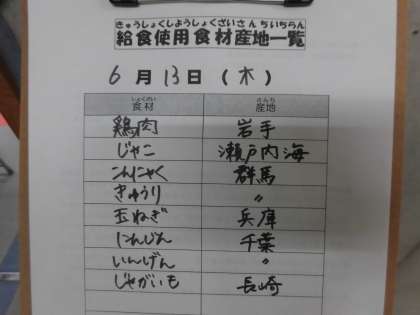 きゅうしょくしようしょくざいさんちいちらん
給食使用食材産地一覧
6月13日(木)
しょくざい さんち
食材 産地
鶏肉 岩手
じゃこ 瀬戸内海
こんにゃく 群馬
きゅうり 〃
玉ねぎ 兵庫
にんじん 千葉
いんげん 〃
じゃがいも 長崎